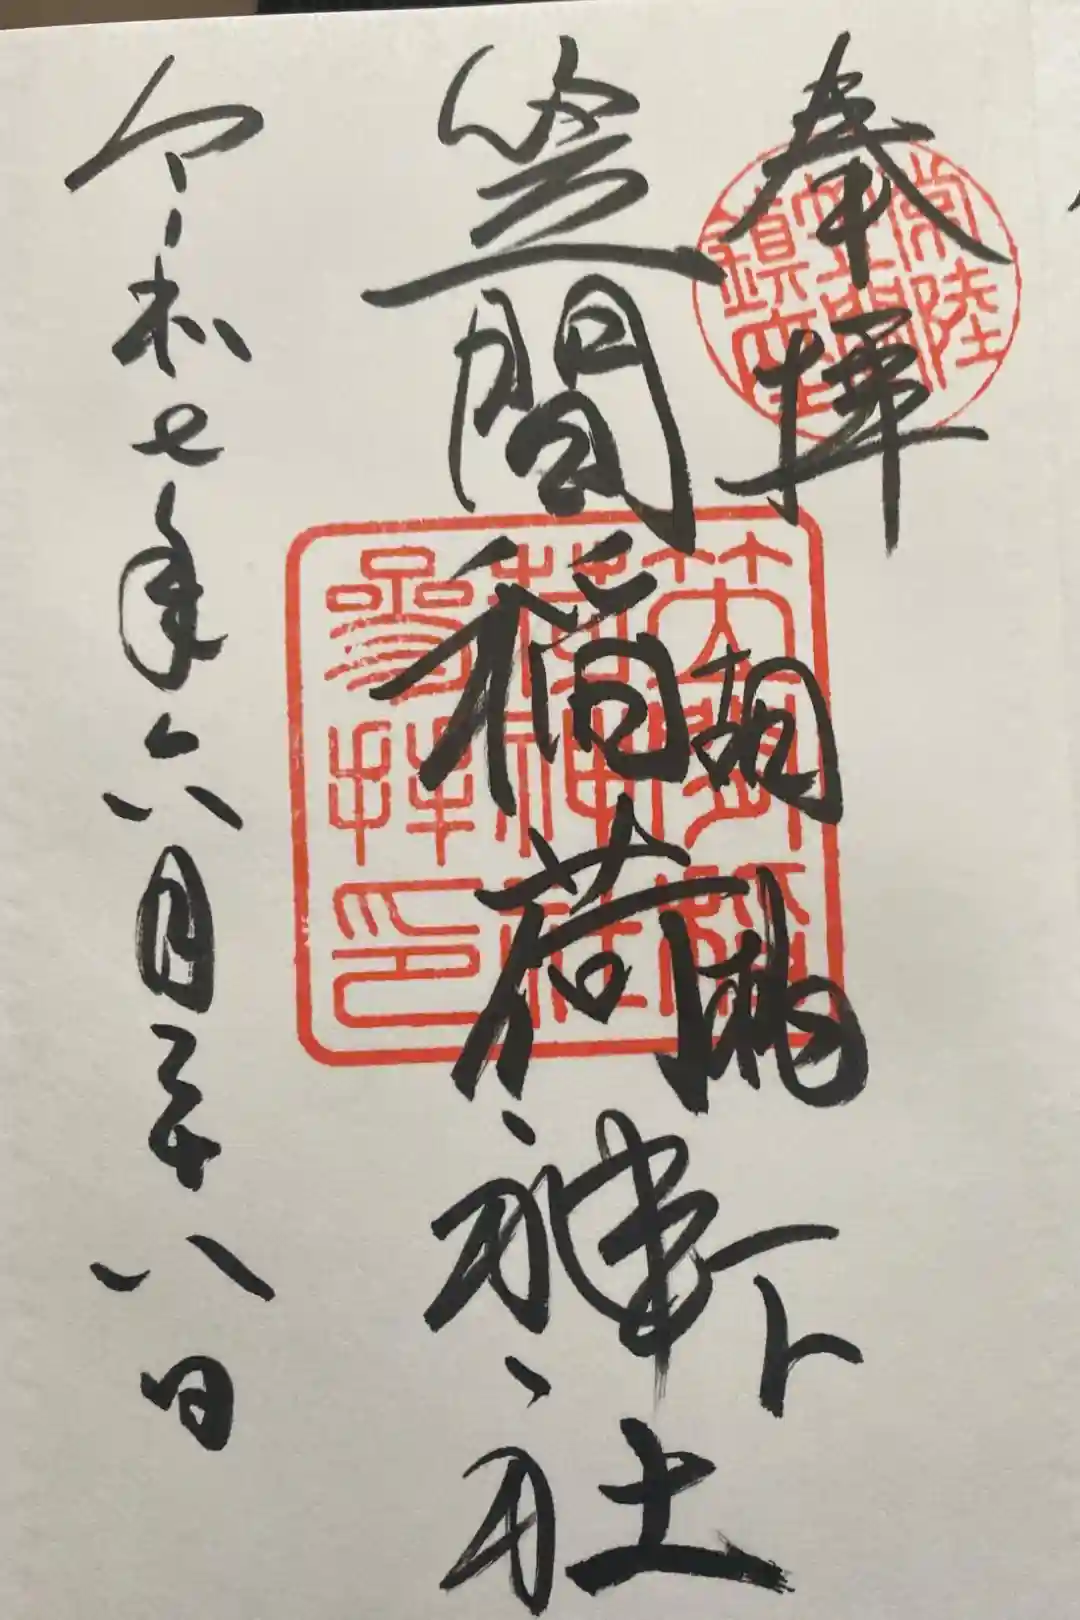 奉拝
常陸
笠間
鎮座
胡桃下
笠間稲荷神社
笠間稲
荷神社
参拝印
令和七年六月二十八日